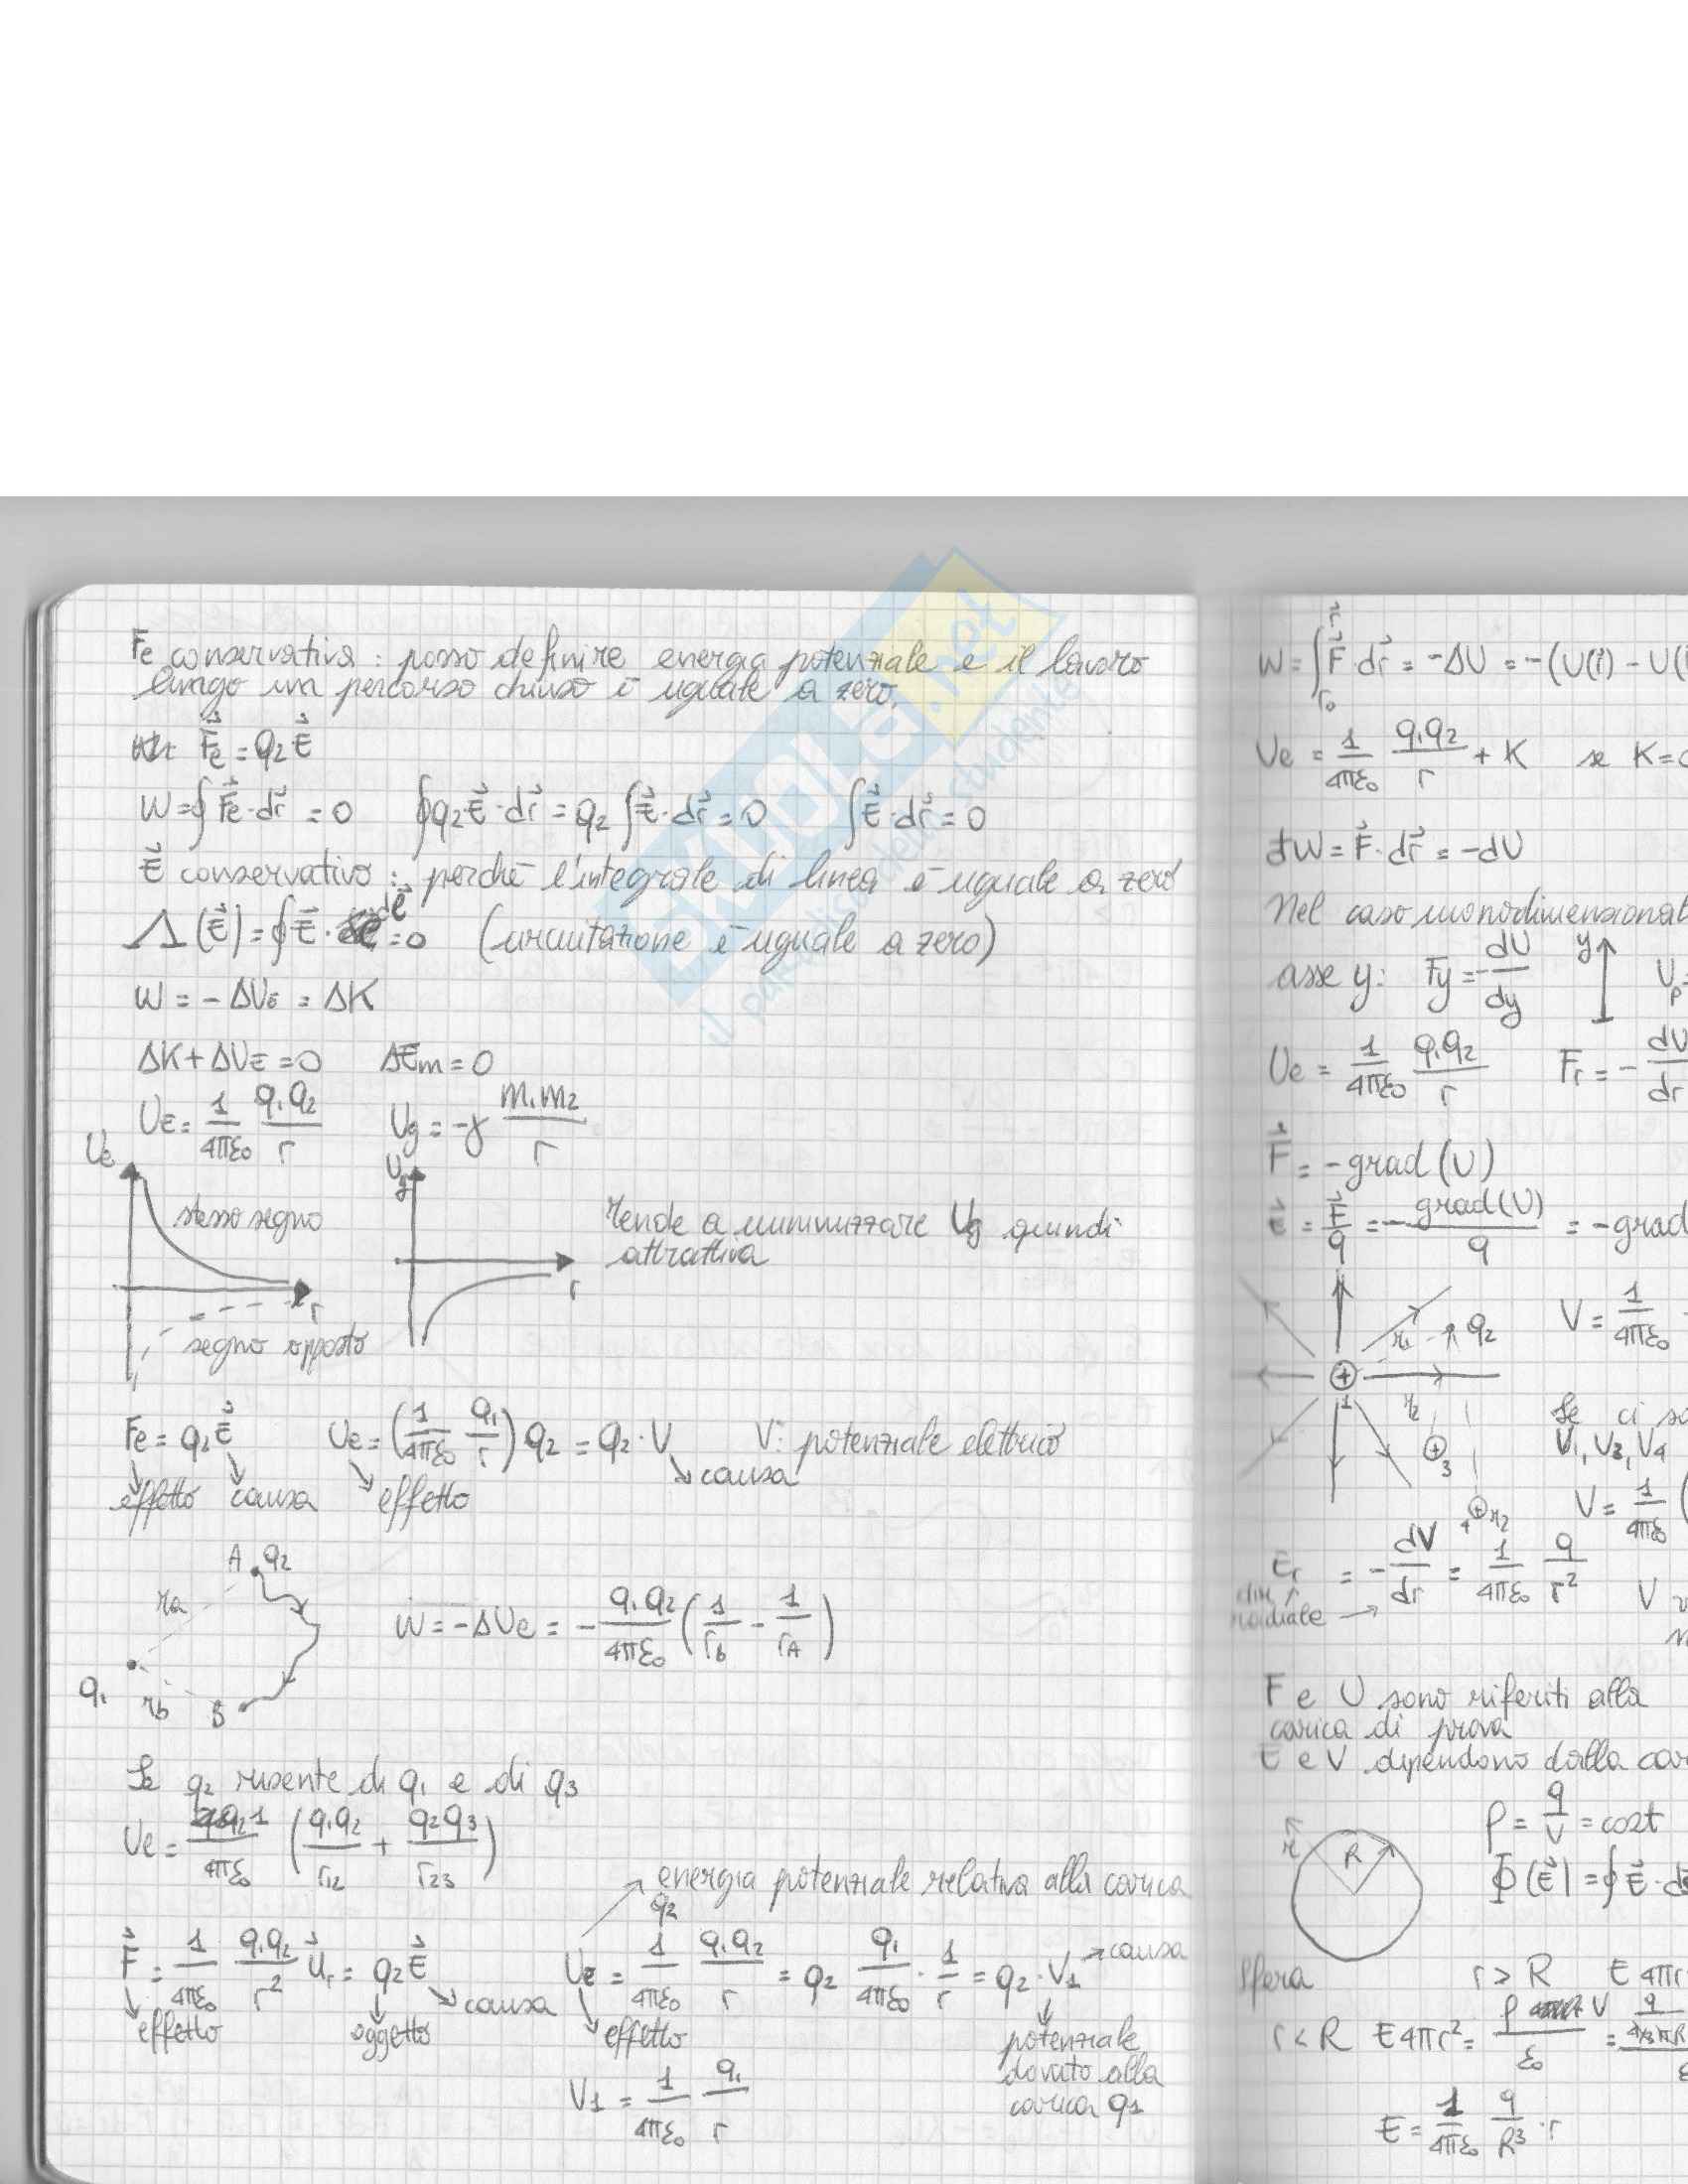 Fe conservativa : posso definire energia potenziale e il lavoro
lungo un percorso chiuso è uguale a zero.
F⃗e = q2 E⃗
W = ∮ F⃗e · dr⃗ = 0    ∮ q2 E⃗ · dr⃗ = q2 ∫ E⃗ · dr⃗ = 0    ∫ E⃗ · dr⃗ = 0
E⃗ conservativo : perchè l'integrale di linea è uguale a zero
Λ (E⃗) = ∮ E⃗ · dl⃗ = 0 (circuitazione è uguale a zero)
W = - ΔUE = ΔK
ΔK + ΔUE = 0    ΔEm = 0
UE = 1/4πε0 q1q2/r    Ug = -γ m1m2/r
Ue
stesso segno
r
segno opposto
Ug
r
Tende a minimizzare Ug quindi
attrattiva
Fe = q2 E⃗    Ue = (1/4πε0 q1/r) q2 = q2 · V    V: potenziale elettrico
effetto causa effetto causa
A q2
ra
q1
rb
B
W = -ΔUe = - q1q2/4πε0 (1/rb - 1/rA)
Se q2 risente di q1 e di q3
Ue = 1/4πε0 (q1q2/r12 + q2q3/r23)
energia potenziale relativa alla carica
q2
F⃗ = 1/4πε0 q1q2/r² u⃗r = q2 E⃗
effetto oggetto causa
UE = 1/4πε0 q1q2/r = q2 q1/4πε0 · 1/r = q2 · V1 causa
effetto
potenziale
dovuto alla
carica q1
V1 = 1/4πε0 q1/r
W = ∫ F⃗ · dr⃗ = -ΔU = -(U(i) - U(i
r0
Ue = 1/4πε0 q1q2/r + K    se K=0
dW = F⃗ · dr⃗ = -dU
Nel caso monodimensional
asse y: Fy = -dU/dy    y    Up=
Ue = 1/4πε0 q1q2/r    Fr = - dU/dr
F⃗ = -grad (U)
E⃗ = F⃗/q = - grad(U)/q = -grad
r1 q2
1
r2
3
4 r2
V = 1/4πε0
Se ci so
V1, V3, V4
V = 1/4πε0 (
Er = - dV/dr = 1/4πε0 q/r²
dir.
radiale
V
F e U sono riferiti alla
carica di prova
E e V dipendono dalla car
r R
ρ = q/V = cost
Φ (E⃗) = ∮ E⃗ · d
Sfera    r > R    E 4πr
r < R    E 4πr² = ρ V/ε0 = q/4/3πR
E = 1/4πε0 q/R³ · r
SKUOLA.net
il paradiso dello studente